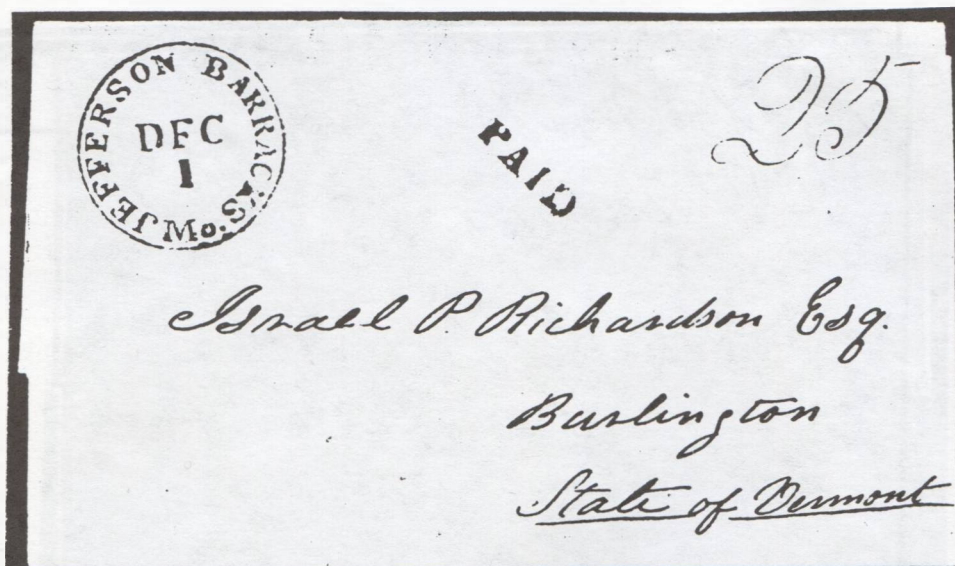 JEFFERSON BARRACKS. Mo.
DEC
1
PAID
25
Israel P. Richardson Esq.
Burlington
State of Vermont